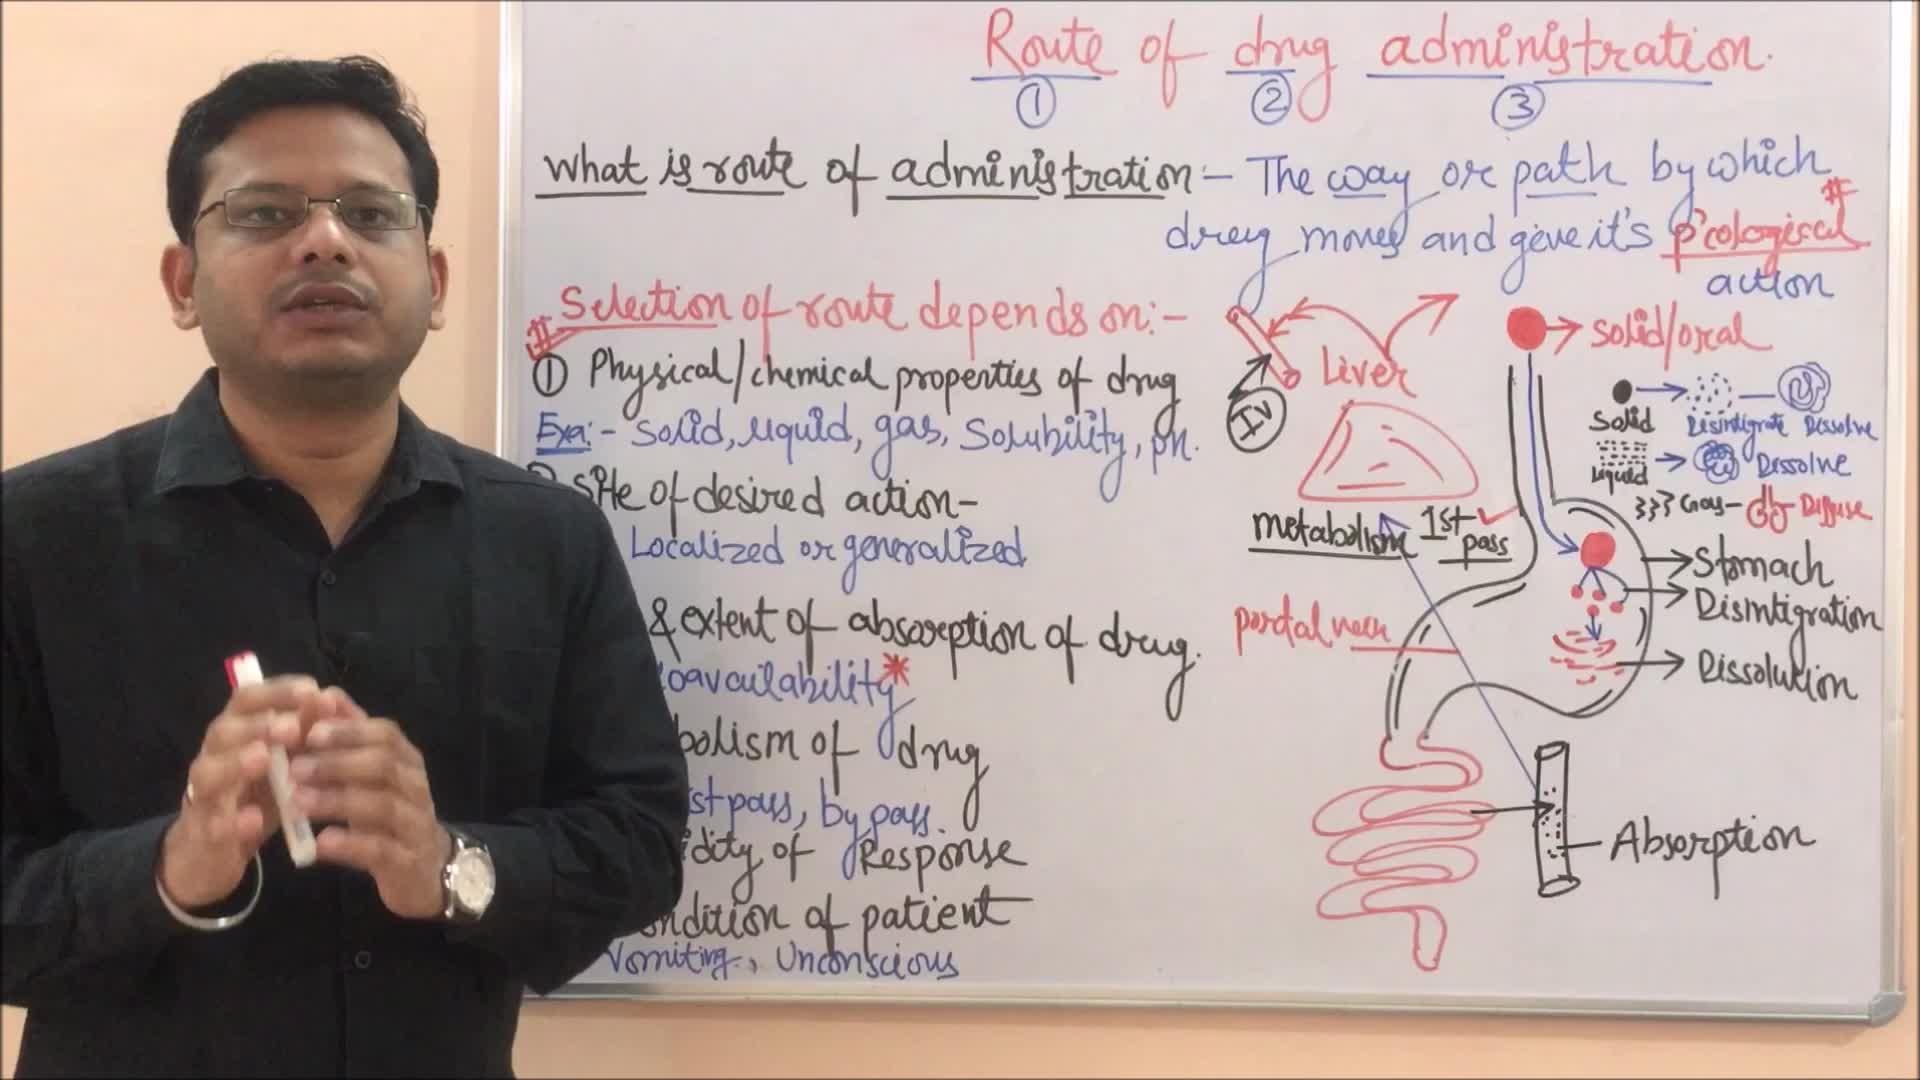 Route of drug administration.
① ② ③
What is route of administration:- The way or path by which
drug moves and give it's p'cological #
action
# Selection of route depends on:-
① Physical/chemical properties of drug
Exa:- Solid, liquid, gas, Solubility, pH.
site of desired action-
Localized or generalized
& extent of absorption of drug.
oavailability*
bolism of drug
st pass, by pass.
idity of Response
ondition of patient
Vomiting, Unconscious
IV
Liver
Metabolism 1st pass
portal vein
Solid/oral
Solid Disintigrate Dissolve
Liquid Dissolve
Gas- Diffuse
Stomach
Disintigration
Dissolution
Absorption